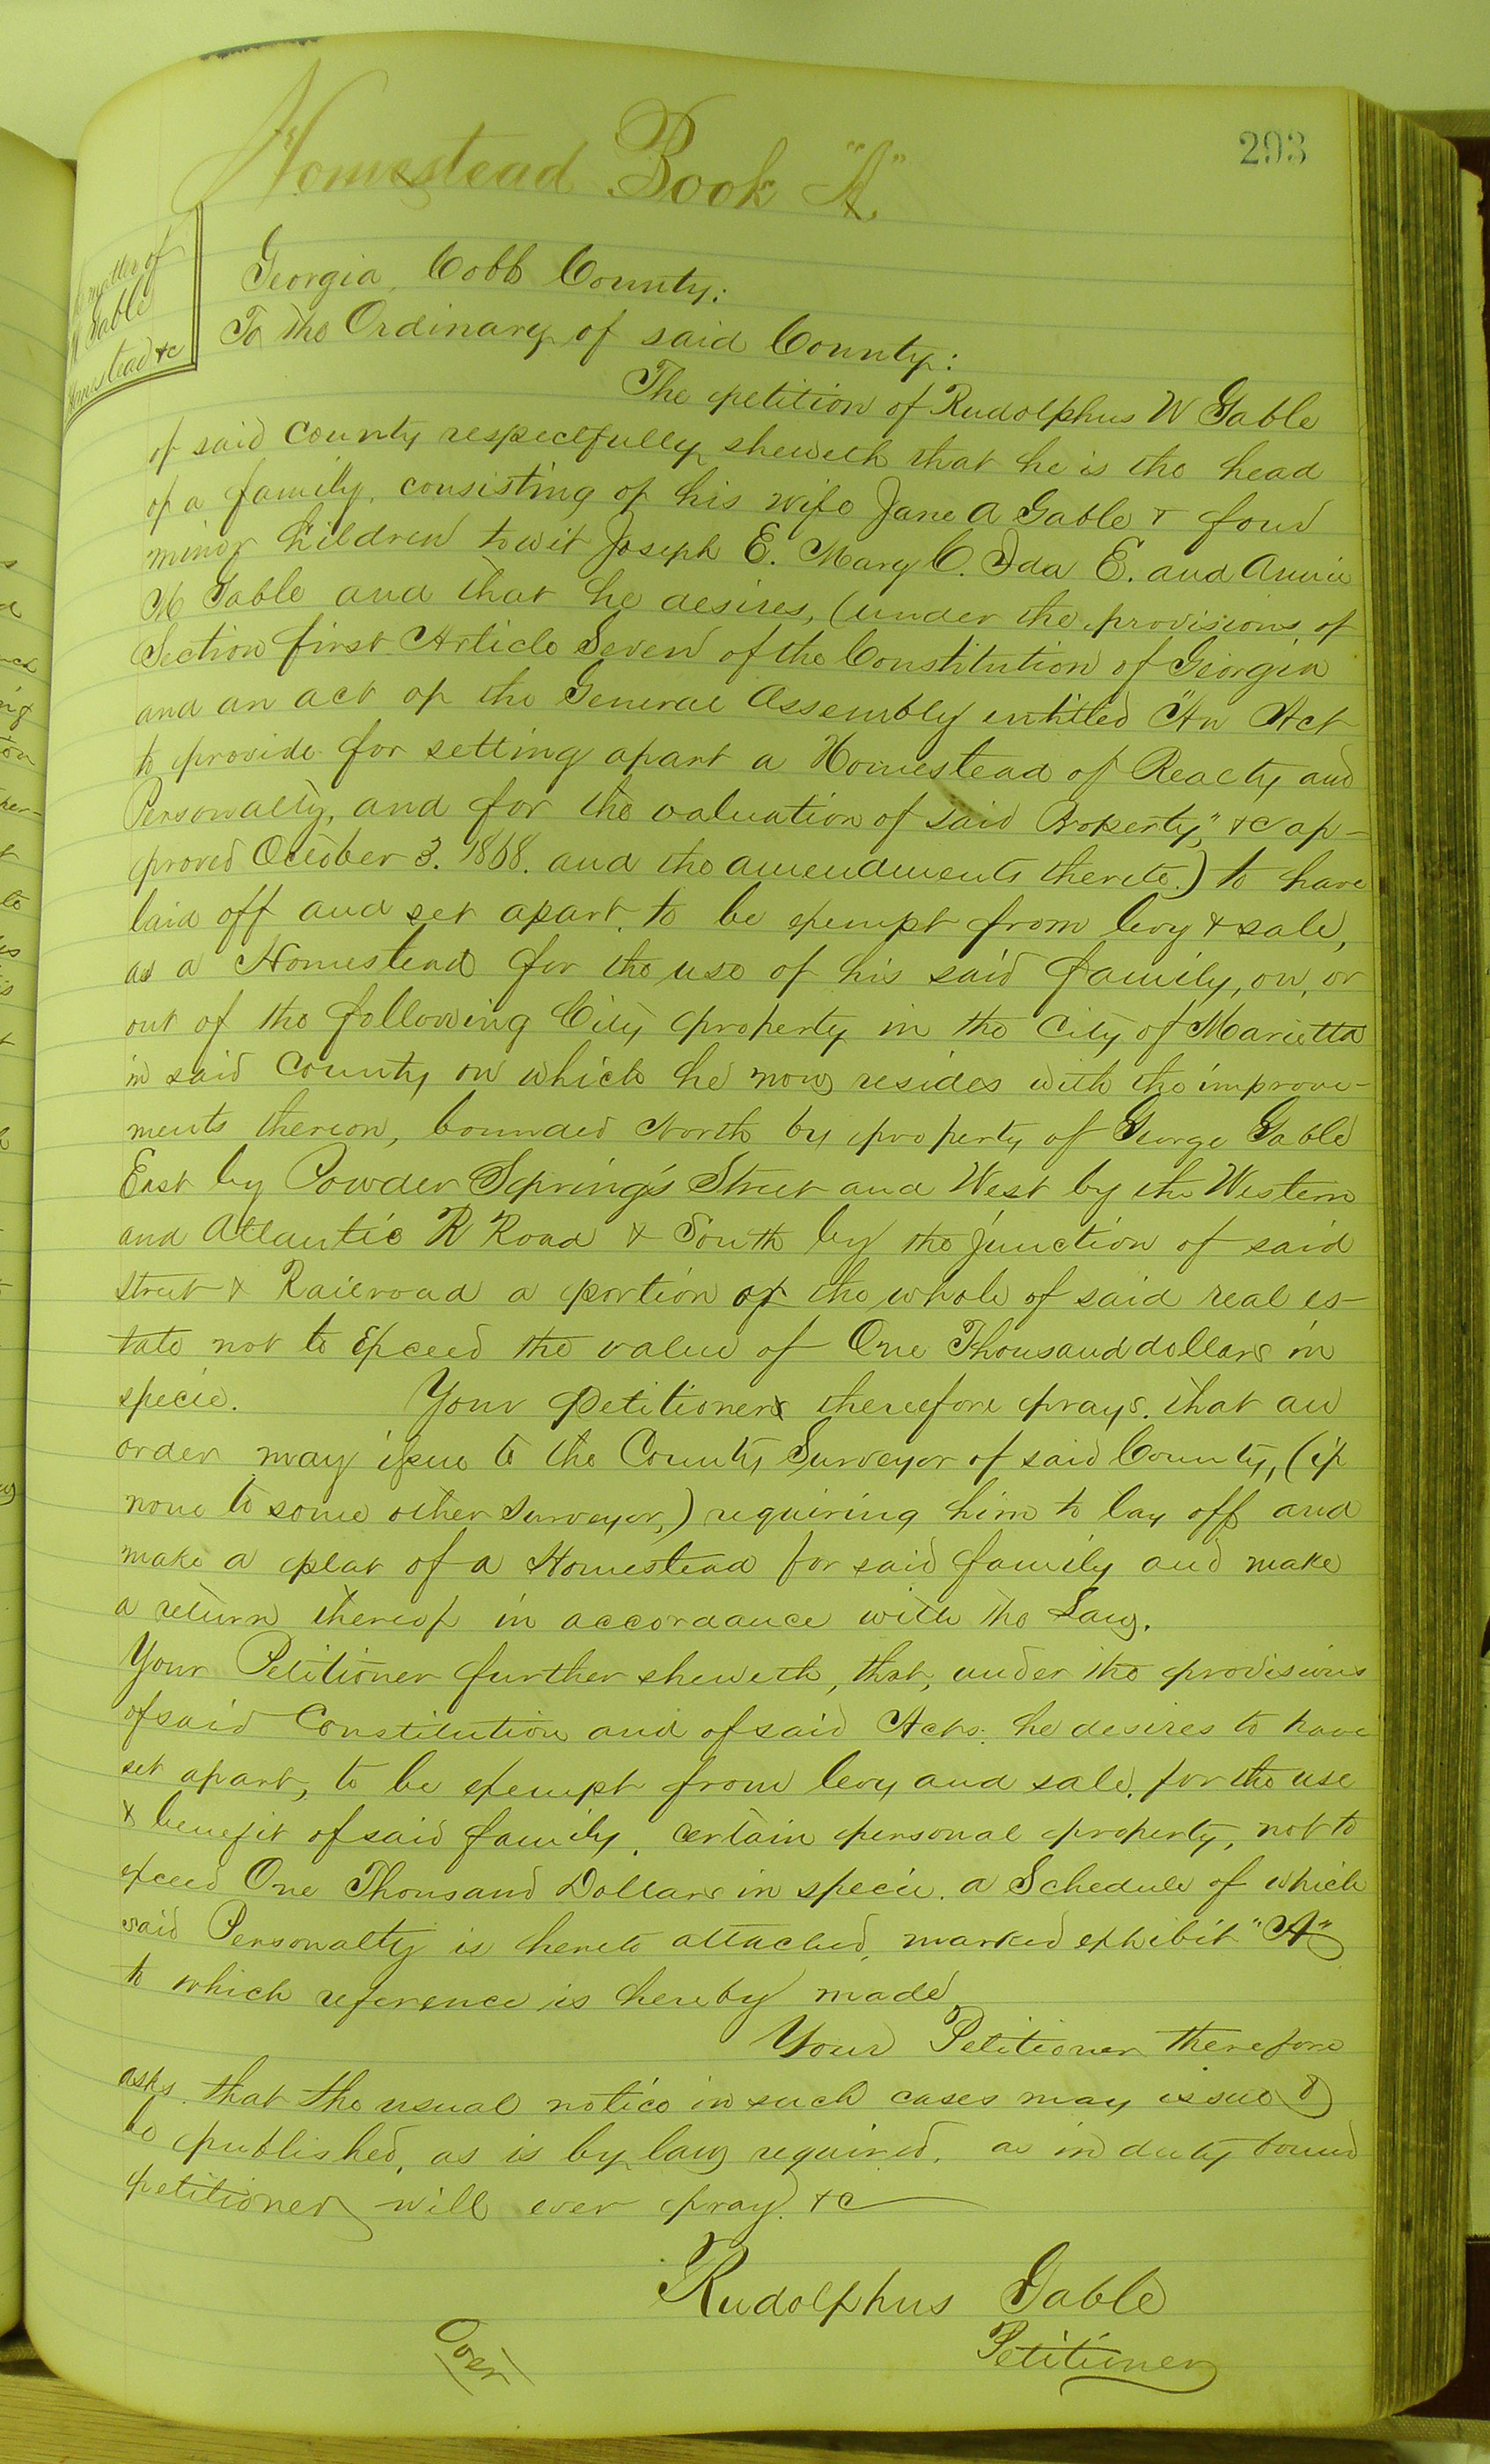 293
Homestead Book "A"
matter of
Gable
Homestead &c
Georgia, Cobb County:
To the Ordinary of said County:
The petition of Rudolphus W Gable
of said County respectfully sheweth that he is the head
of a family, consisting of his wife Jane A Gable & four
minor children towit Joseph E. Mary C. Ida E. and Annie
M Gable and that he desires, (under the provisions of
Section first Article Seven of the Constitution of Georgia
and an act of the General Assembly entitled "An Act
to provide for setting apart a Homestead of Realty and
Personalty, and for the valuation of said Property," &c ap-
proved October 3. 1868. and the amendments thereto.) to have
laid off and set apart, to be exempt from levy & sale,
as a Homestead for the use of his said family, on, or
out of the following City property in the City of Marietta
in said County on which he now resides with the improve-
ments thereon, bounded North by property of George Gable
East by Powder Springs Street and West by the Western
and Atlantic R Road & South by the junction of said
street & Railroad a portion or the whole of said real es-
tate not to exceed the value of One Thousand dollars in
specie. Your Petitioner therefore prays that an
order may issue to the County Surveyor of said County, (if
none to some other Surveyor,) requiring him to lay off and
make a plat of a Homestead for said family and make
a return thereof in accordance with the Law.
Your Petitioner further sheweth, that, under the provisions
of said Constitution and of said Acts. he desires to have
set apart, to be exempt from levy and sale. for the use
& benefit of said family, certain personal property, not to
exceed One Thousand Dollars in specie. a Schedule of which
said Personalty is hereto attached, marked exhibit "A"
to which reference is hereby made
Your Petitioner therefore
asks that the usual notice in such cases may issue &
be published, as is by law required, as in duty bound
petitioner will ever pray. &c
Rudolphus Gable
Petitioner
Over